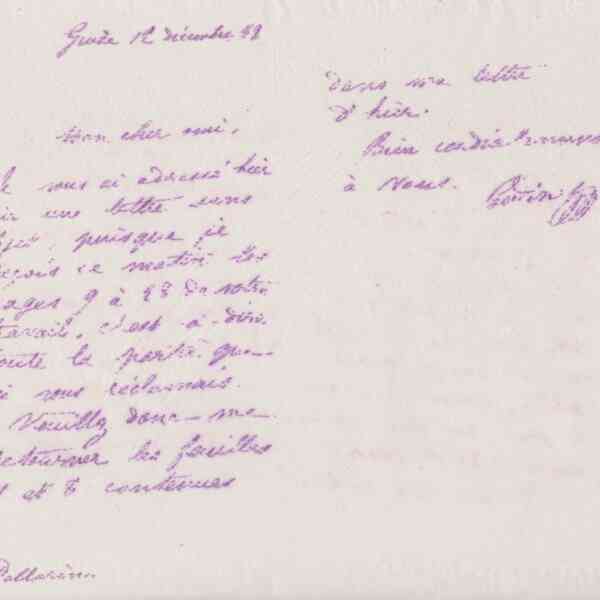 12 décembre 48
Mon cher ami,
vous ai adressé hier
une lettre sans
puisque je
ce matin les
ages 9 à 28 de votre
travail, c'est à dire
toute la partie que
vous réclamais.
Veuillez donc me
retourner les feuilles
et 8 contenues
dans ma lettre
d'hier.
Bien
à vous.